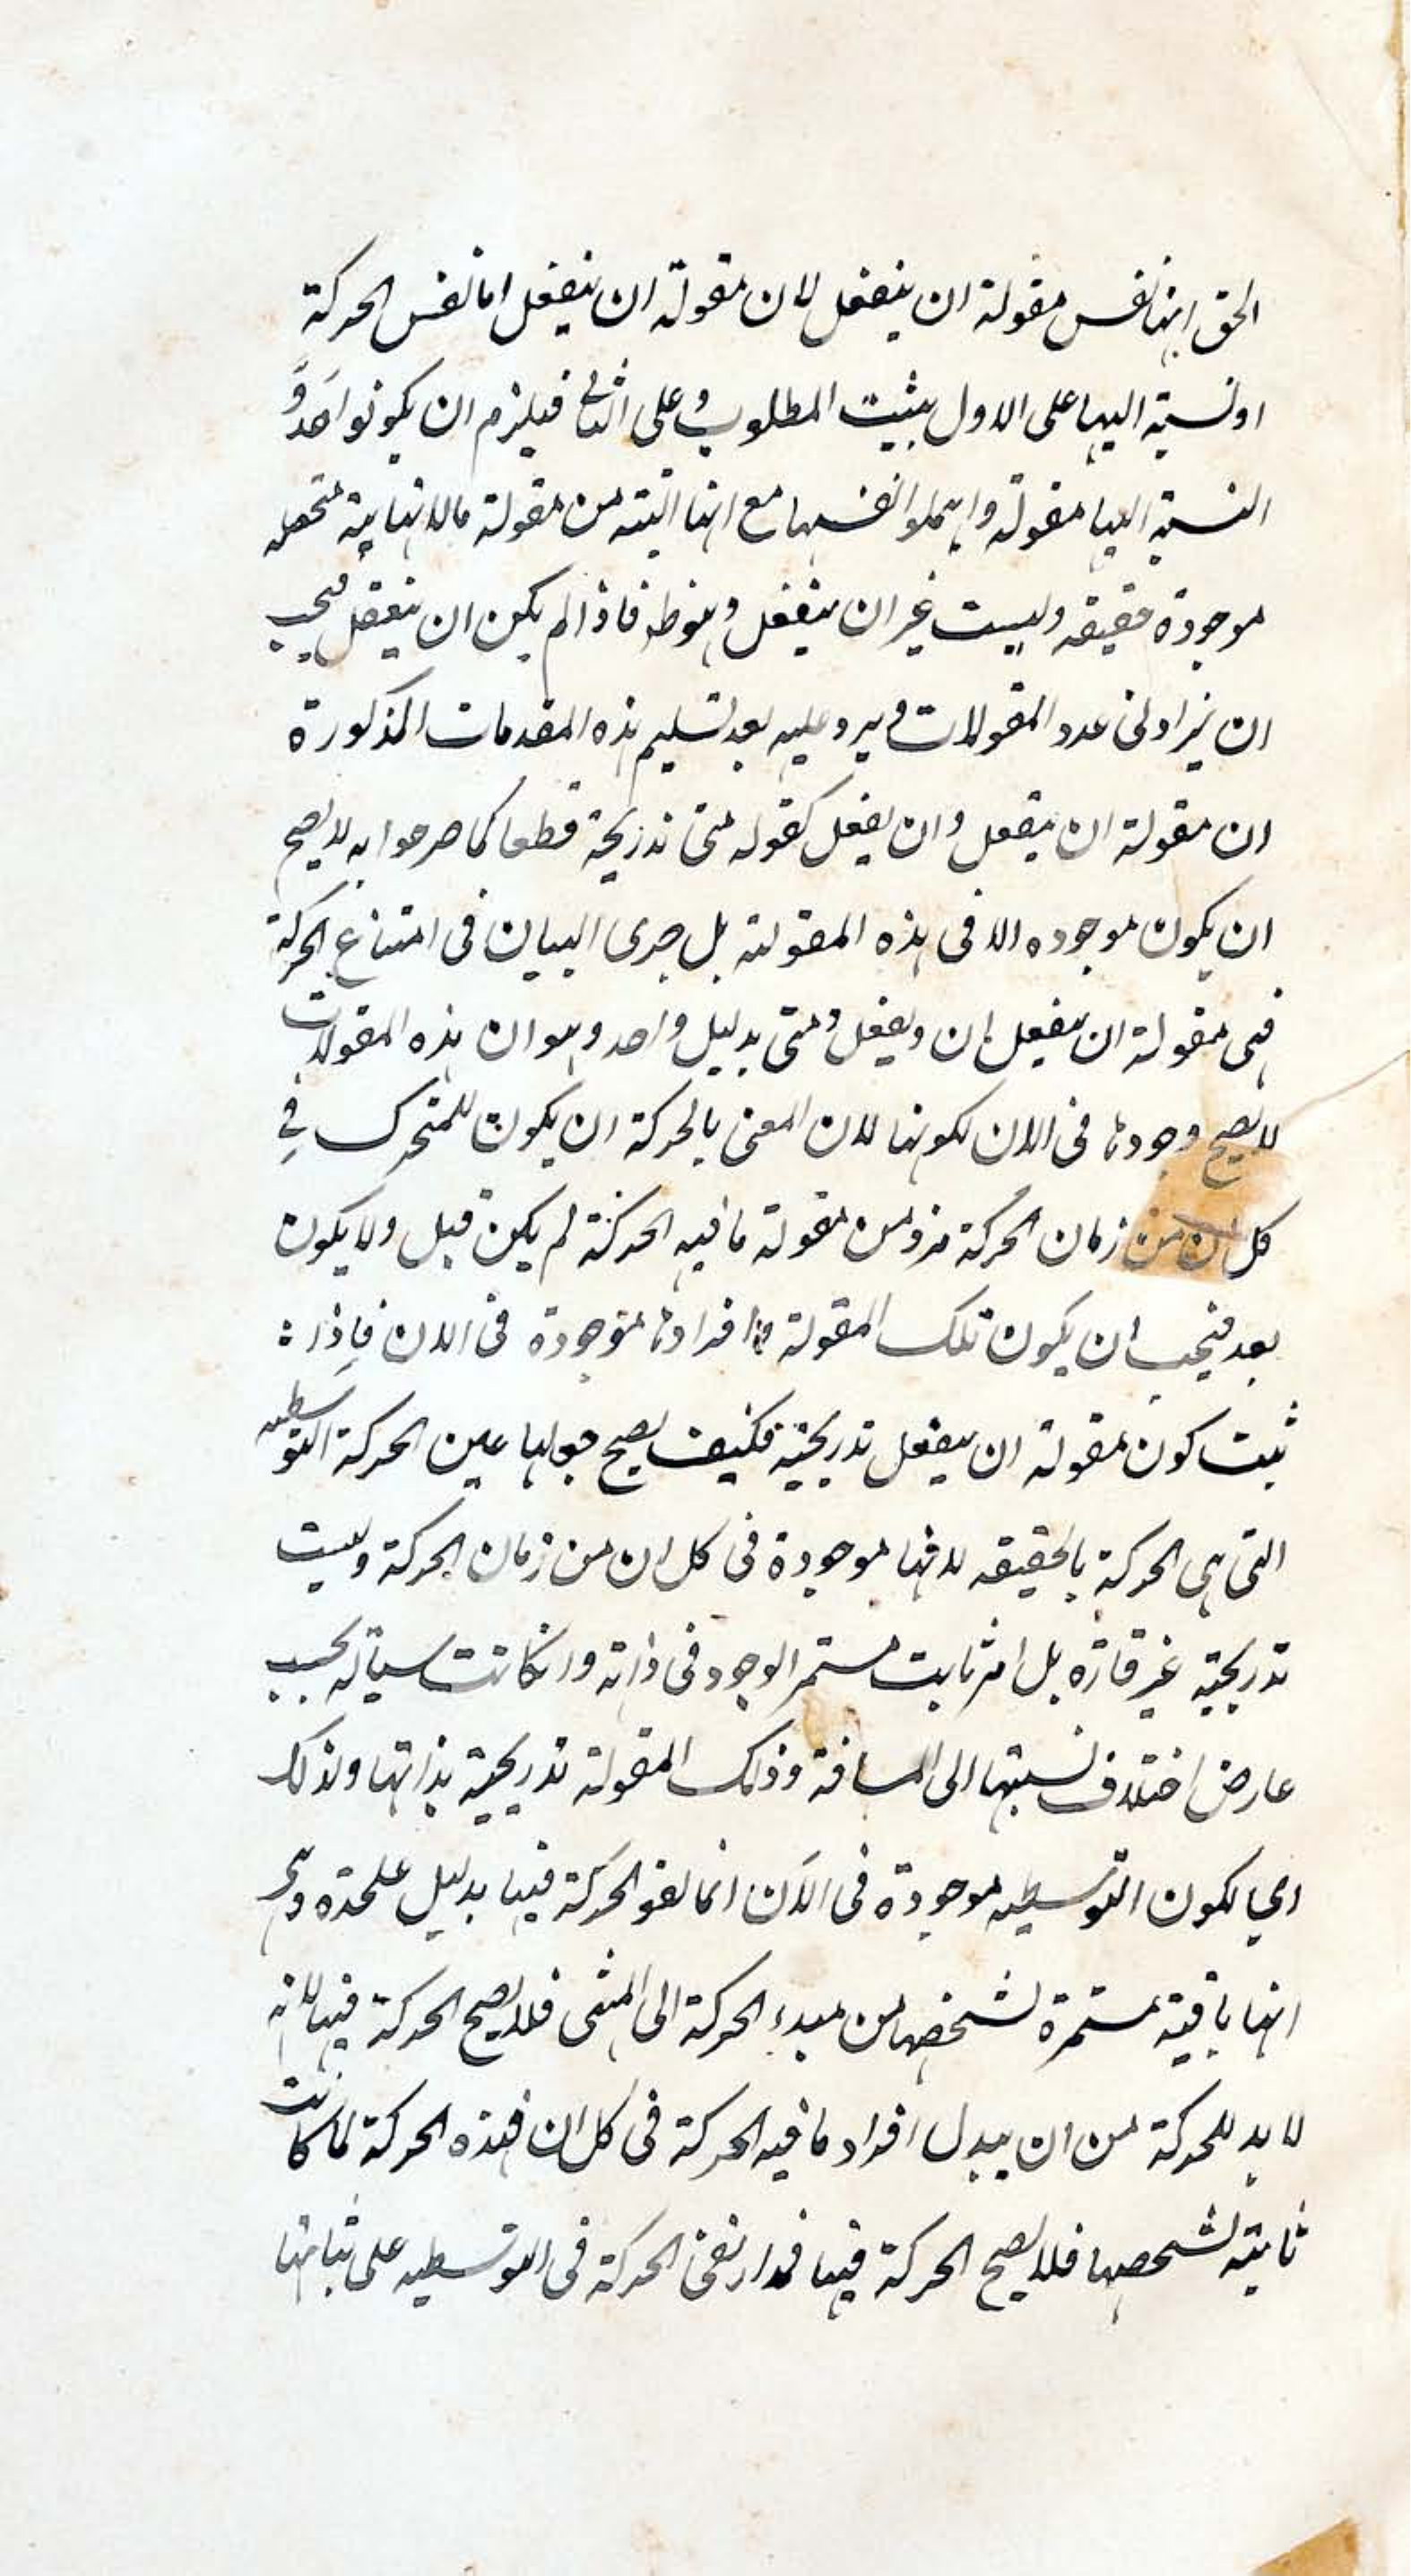 الحق انها نفس مقولة ان ينفعل لان مقولة ان ينفعل اما نفس الحركة
او نسبة اليها على الاول يثبت المطلوب و على الثاني فيلزم ان يكونوا اخذوا
النسبة اليها مقولة و اهملوا انفسها مع انها البتة من مقولة ما لانها هية متحصله
موجودة حقيقه و ليست غير ان ينفعل و هو ظ فاذا لم يكن ان ينفعل فيجب
ان يزاد فى عدد المقولات و يرد عليه بعد تسليم هذه المقدمات المذكورة
ان مقولة ان ينفعل و ان يفعل كقوله متى تدريجية قطعا كما صرحوا به لا يصح
ان يكون موجوده الا فى هذه المقولة بل جرى البيان فى امتناع الحركة
فى مقولة ان ينفعل ان و يفعل و متى بدليل واحد و هو ان هذه المقولات
لا يصح وجودها فى الان لكونها لان المعنى بالحركة ان يكون للمتحرك فى
كل ان من زمان الحركة فرد من مقولة ما فيه الحركة لم يكن قبل و لا يكون
بعد فيجب ان يكون تلك المقولة افرادها موجودة فى الان فاذا
ثبت كون مقولة ان ينفعل تدريجية فكيف يصح جعلها عين الحركة التوسطيه
التى هى الحركة بالحقيقه لانها موجودة فى كل ان من زمان الحركة و ليست
تدريجية غير قارّه بل امر ثابت مستمر الوجود فى ذاته و ان كانت سيالة بحسب
عارض اختلاف نسبتها الى المسافة و ذلك المقولة تدريجية بذاتها و لذلك
اى لكون التوسطيه موجودة فى الآن انما نفو الحركة فيها بدليل علحده و هى
انها باقية مستمرة لشخصها من مبدء الحركة الى المنتهى فلا يصح الحركة فيها لانه
لا بد للحركة من ان يبدل افراد ما فيه الحركة فى كل ان فهذه الحركة لما كانت
ثابتة لشخصها فلا يصح الحركة فيها فمدار نفى الحركة فى التوسطيه على ثباتها